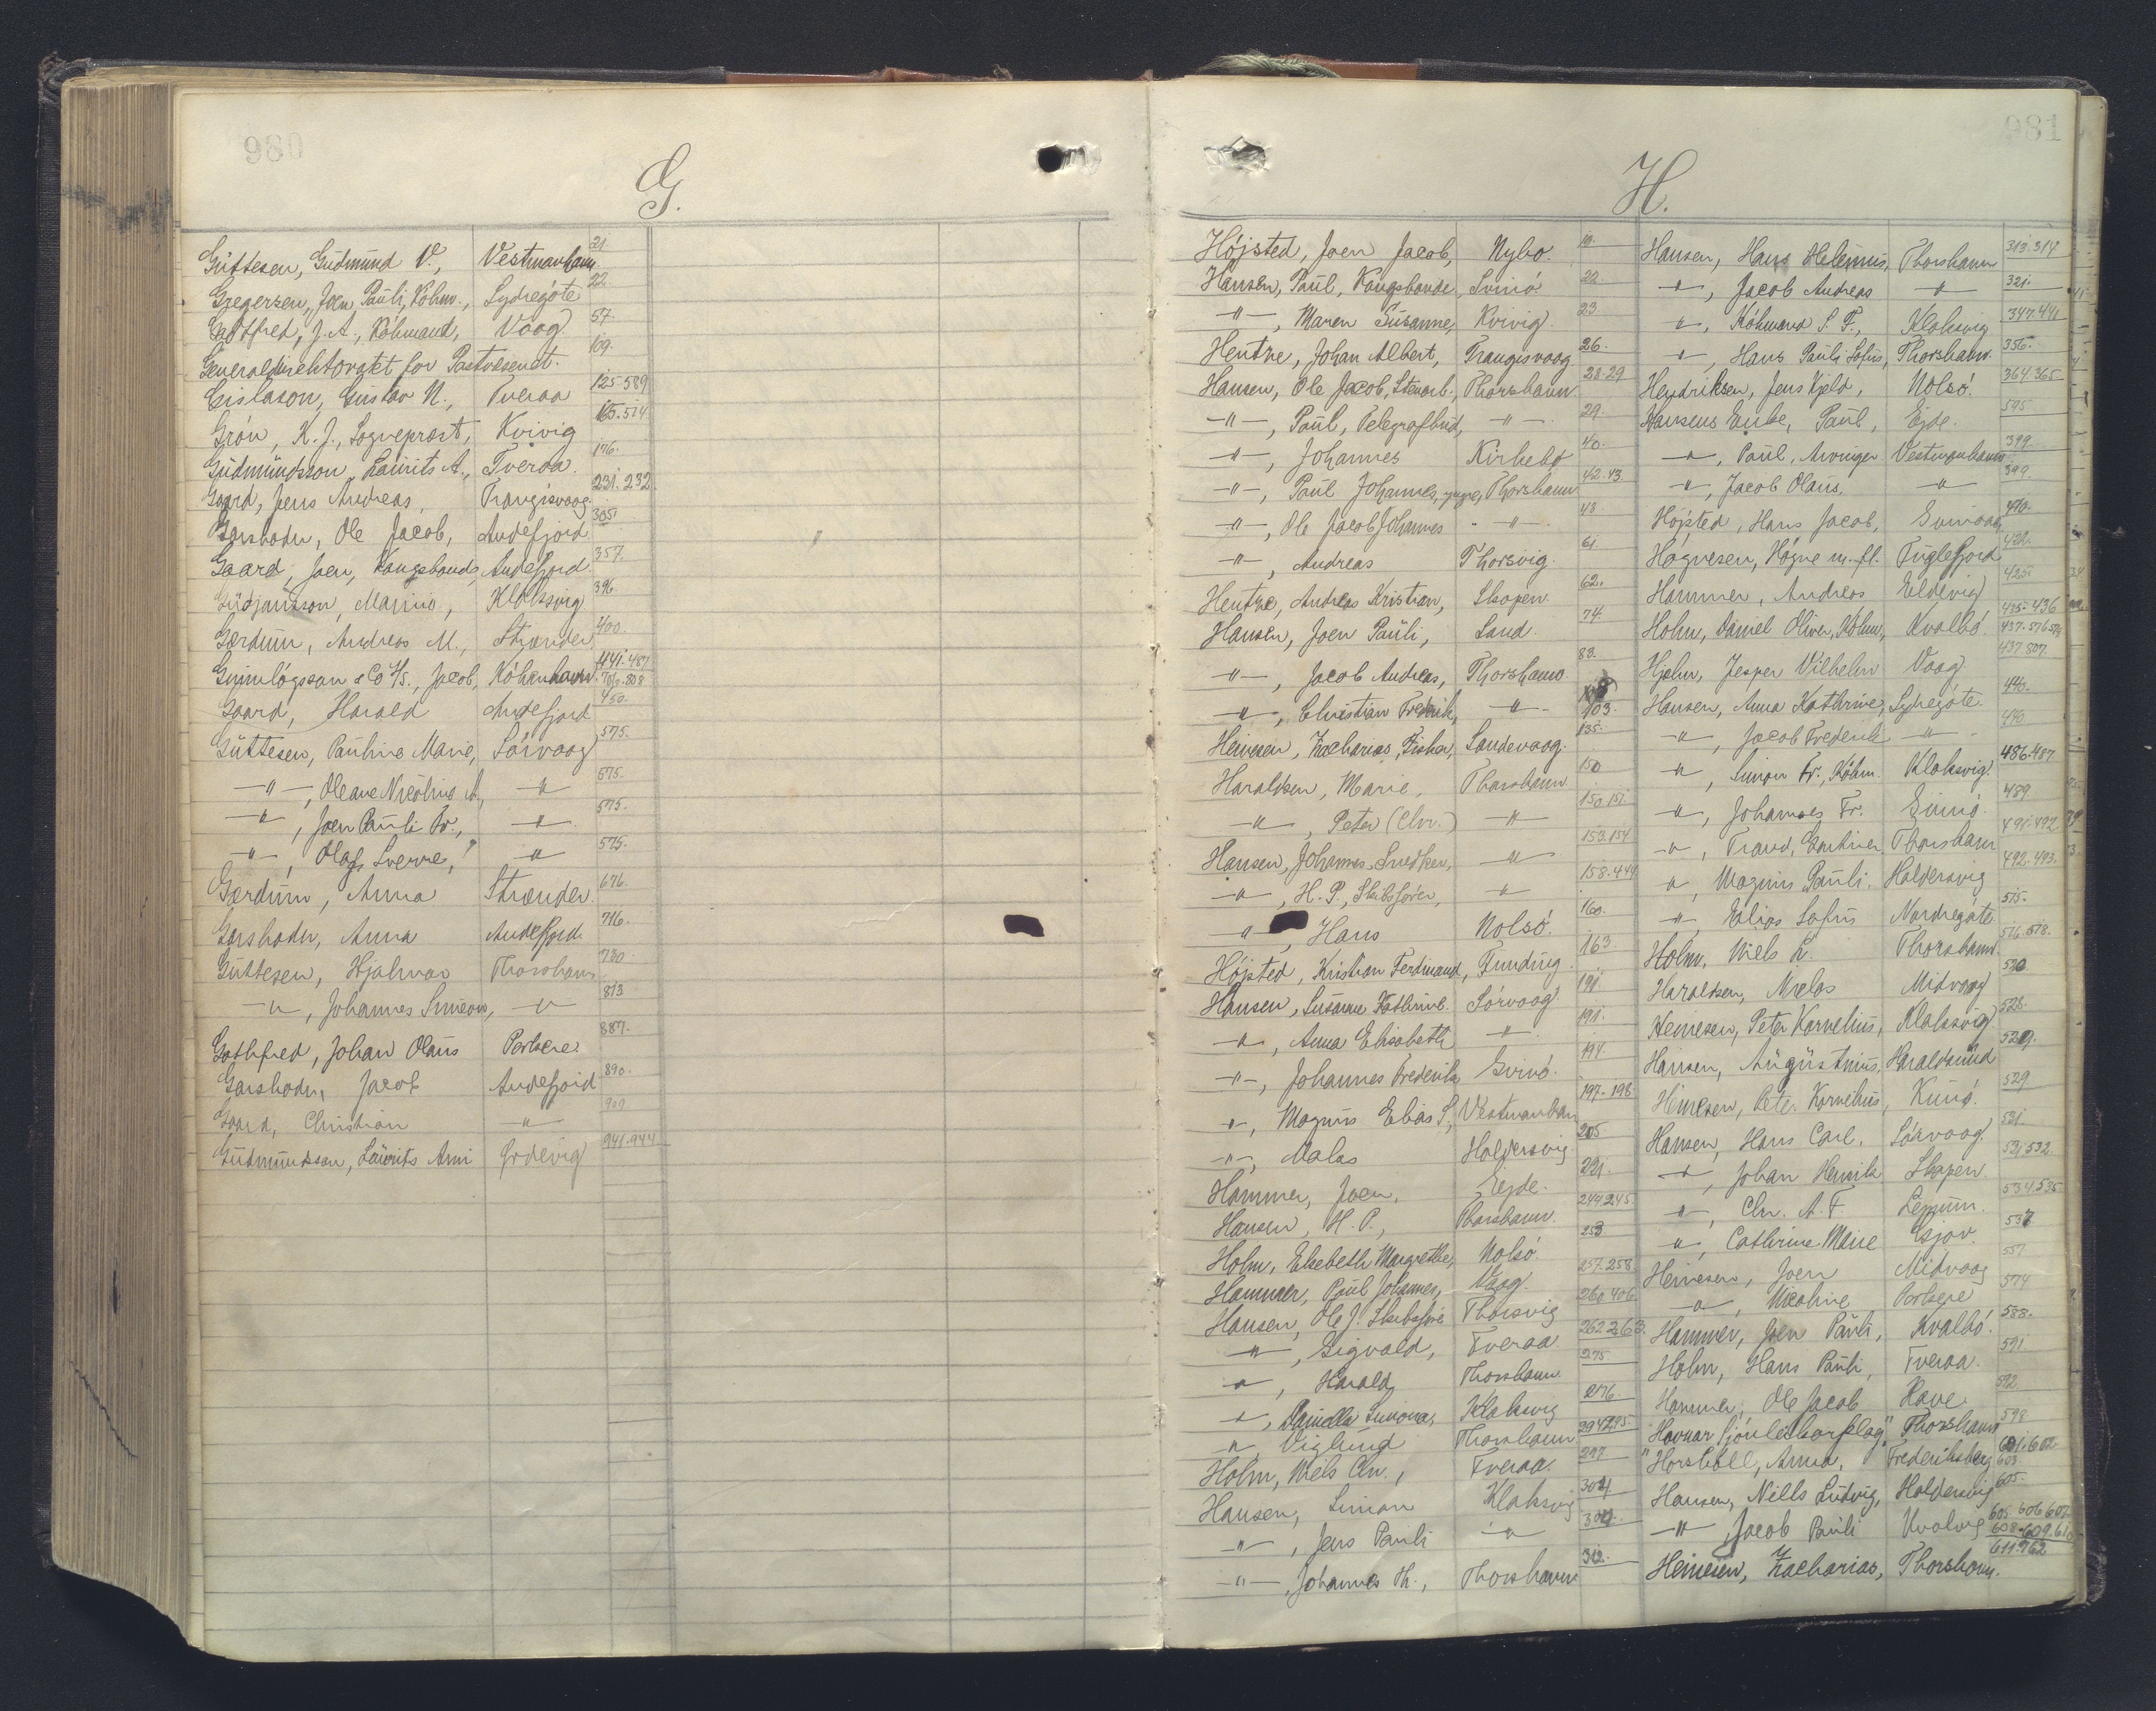 980
G.
Guttesen, Gudmund V., Vestmanhavn 21.
Gregersen, Joen Pauli, Köbm., Sydregöte 22
Gottfred, J. A., Köbmand, Vaag. 57.
Generaldirektoratet for Postvæsenet. 109.
Gislason, Gustav N., Tveraa 125.589
Grön, K. J., Sognepræst, Kvivig 165.514
Gudmundsson, Laurits A., Tveraa. 176.
Gaard, Jens Andreas, Trangisvaag. 231. 232.
Garshodn, Ole Jacob, Andefjord. 305
Gaard, Joen, Kongsbonde, Andefjord. 357.
Gudjonsson, Marino, Klaksvig 396.
Gærdum, Andreas M., Strænder 400.
Gunnlögsson & Co A/S., Jacob, Köbenhavn. 441.487 808
Gaard, Harald Andefjord 450.
Guttesen, Pauline Marie, Sörvaag 575.
-"-, Oleane Nicoline A., -"- 575.
-"-, Joen Pauli Fr., -"- 575.
-"-, Olaf Sverre, -"- 575.
Gærdum, Anna Strænder. 676.
Garshodn, Anna Andefjord. 716.
Guttesen, Hjalmar Thorshavn 730.
-"-, Johannes Simeon, -"- 813
Gothfred, Johan Olaus Porkere. 887.
Garshodn, Jacob Andefjord 890.
Gaard, Christian -"- 909
Gudmundsson, Laurits Arni Ördevig 941.944
981
H.
Höjsted, Joen Jacob, Nybo. 10.
Hansen, Paul, Kongsbonde, Svinö. 22.
-"-, Maren Susanne, Kvivig. 23
Hentze, Johan Albert, Trangisvaag 26.
Hansen, Ole Jacob, Stenarb., Thorshavn. 28.29
-"-, Paul, Telegrafbud, -"- 29.
-"-, Johannes Kirkebö 40.
-"-, Paul Johannes, yngre, Thorshavn 42.43.
-"-, Ole Jacob Johannes -"- 43
-"-, Andreas Thorsvig. 61.
Hentze, Andreas Kristian, Skopen. 62.
Hansen, Joen Pauli, Sand. 74.
-"-, Jacob Andreas, Thorshavn 83.
-"-, Christian Fredrik, -"- 103.
Heinesen, Zacharias, Fisker, Sandevaag. 135.
Haraldsen, Marie, Thorshavn. 150
-"-, Peter (Chr.) -"- 150.151.
Hansen, Johannes, Snedker, -"- 153.154
-"-, H. P., Skibsförer, -"- 158.444
-"-, Hans Nolsö. 160.
Höjsted, Kristian Ferdinand, Funding. 163
Hansen, Susanne Kathrine. Sörvaag. 191.
-"-, Anna Elisabeth -"- 191.
-"-, Johannes Frederik Svinö. 194.
-"-, Magnus Elias S., Vestmanhavn 197-198
-"-, Malas Haldersvig 205
Hammer, Joen, Ejde. 221.
Hansen, H. P., Thorshavn. 244.245.
Holm, Elsebeth Margrethe, Nolsö. 253
Hammer, Paul Johannes, Vaag. 257.258
Hansen, Ole J. Skibsförer Thorsvig 260 406
-"-, Sigvald, Tveraa. 262.263.
-"-, Harald Thorshavn. 275
-"-, Daniella Simona, Klaksvig 276.
-"-, Viglund Thorshavn 294.295
Holm, Niels Chr., Tveraa. 297
Hansen, Simon Klaksvig 304
-"-, Jens Pauli -"- 309.
-"-, Johannes Th., Thorshavn 312.
Hansen, Hans Helenius, Thorshavn 313.314
-"-, Jacob Andreas -"- 321.
-"-, Köbmand S. F., Klaksvig 347.441
-"-, Hans Pauli Sofus, Thorshavn. 356.
Hendriksen, Jens Kjeld, Nolsö. 364.365
Hansens Enke, Paul, Ejde. 595
-"-, Paul, Arvinger. Vestmanhavn 399.
-"-, Jacob Olaus, -"- 399.
Höjsted, Hans Jacob, Svinaa, 410.
Högnesen, Högne m. fl. Fuglefjord 422.
Hammer, Andreas Eldevig 425.
Holm, Daniel Oliver, Köbm., Kvalbö. 435-436 437.576
Hjelm, Jesper Vilhelm Vaag. 437.807.
Hansen, Anna Kathrine, Sydregöte. 440.
-"-, Jacob Frederik -"- 440
-"-, Simon Fr., Köbm. Klaksvig. 486.487
-"-, Johannes Fr. Svinö. 489.
-"-, Trand, Gartner. Thorshavn 491.492
-"-, Magnus Pauli. Haldersvig 492.493.
-"-, Elias Sofus Nordregöte. 515.
Holm, Niels L. Thorshavn. 516.518.
Haraldsen, Niclas Midvaag 520
Heinesen, Peter Kornelius, Klaksvig 528.
Hansen, Augustinus, Haraldsund 529.
Heinesen, Peter Kornelius, Kunö. 529
Hansen, Hans Carl. Sörvaag. 531.
-"-, Johan Henrik Skopen. 531 532
-"-, Chr. A. F. Lerum. 534.535
-"-, Cathrine Marie Gjov. 537
Heinesen, Joen Midvaag 557
-"-, Nicoline Porkere 574
Hammer, Joen Pauli, Kvalbö. 583.
Holm, Hans Pauli, Tveraa. 591
Hammer, Ole Jacob Hove 592
"Havnar Sjonleikarfelag", Thorshavn 598
Horsböll, Anna, Frederiksberg 601.602 603
Hansen, Niells Ludvig, Haldersvig 605.
-"-, Jacob Pauli Kvalvig 605 606 607 608-609.610
Heinesen, Zacharias, Thorshavn. 611.762